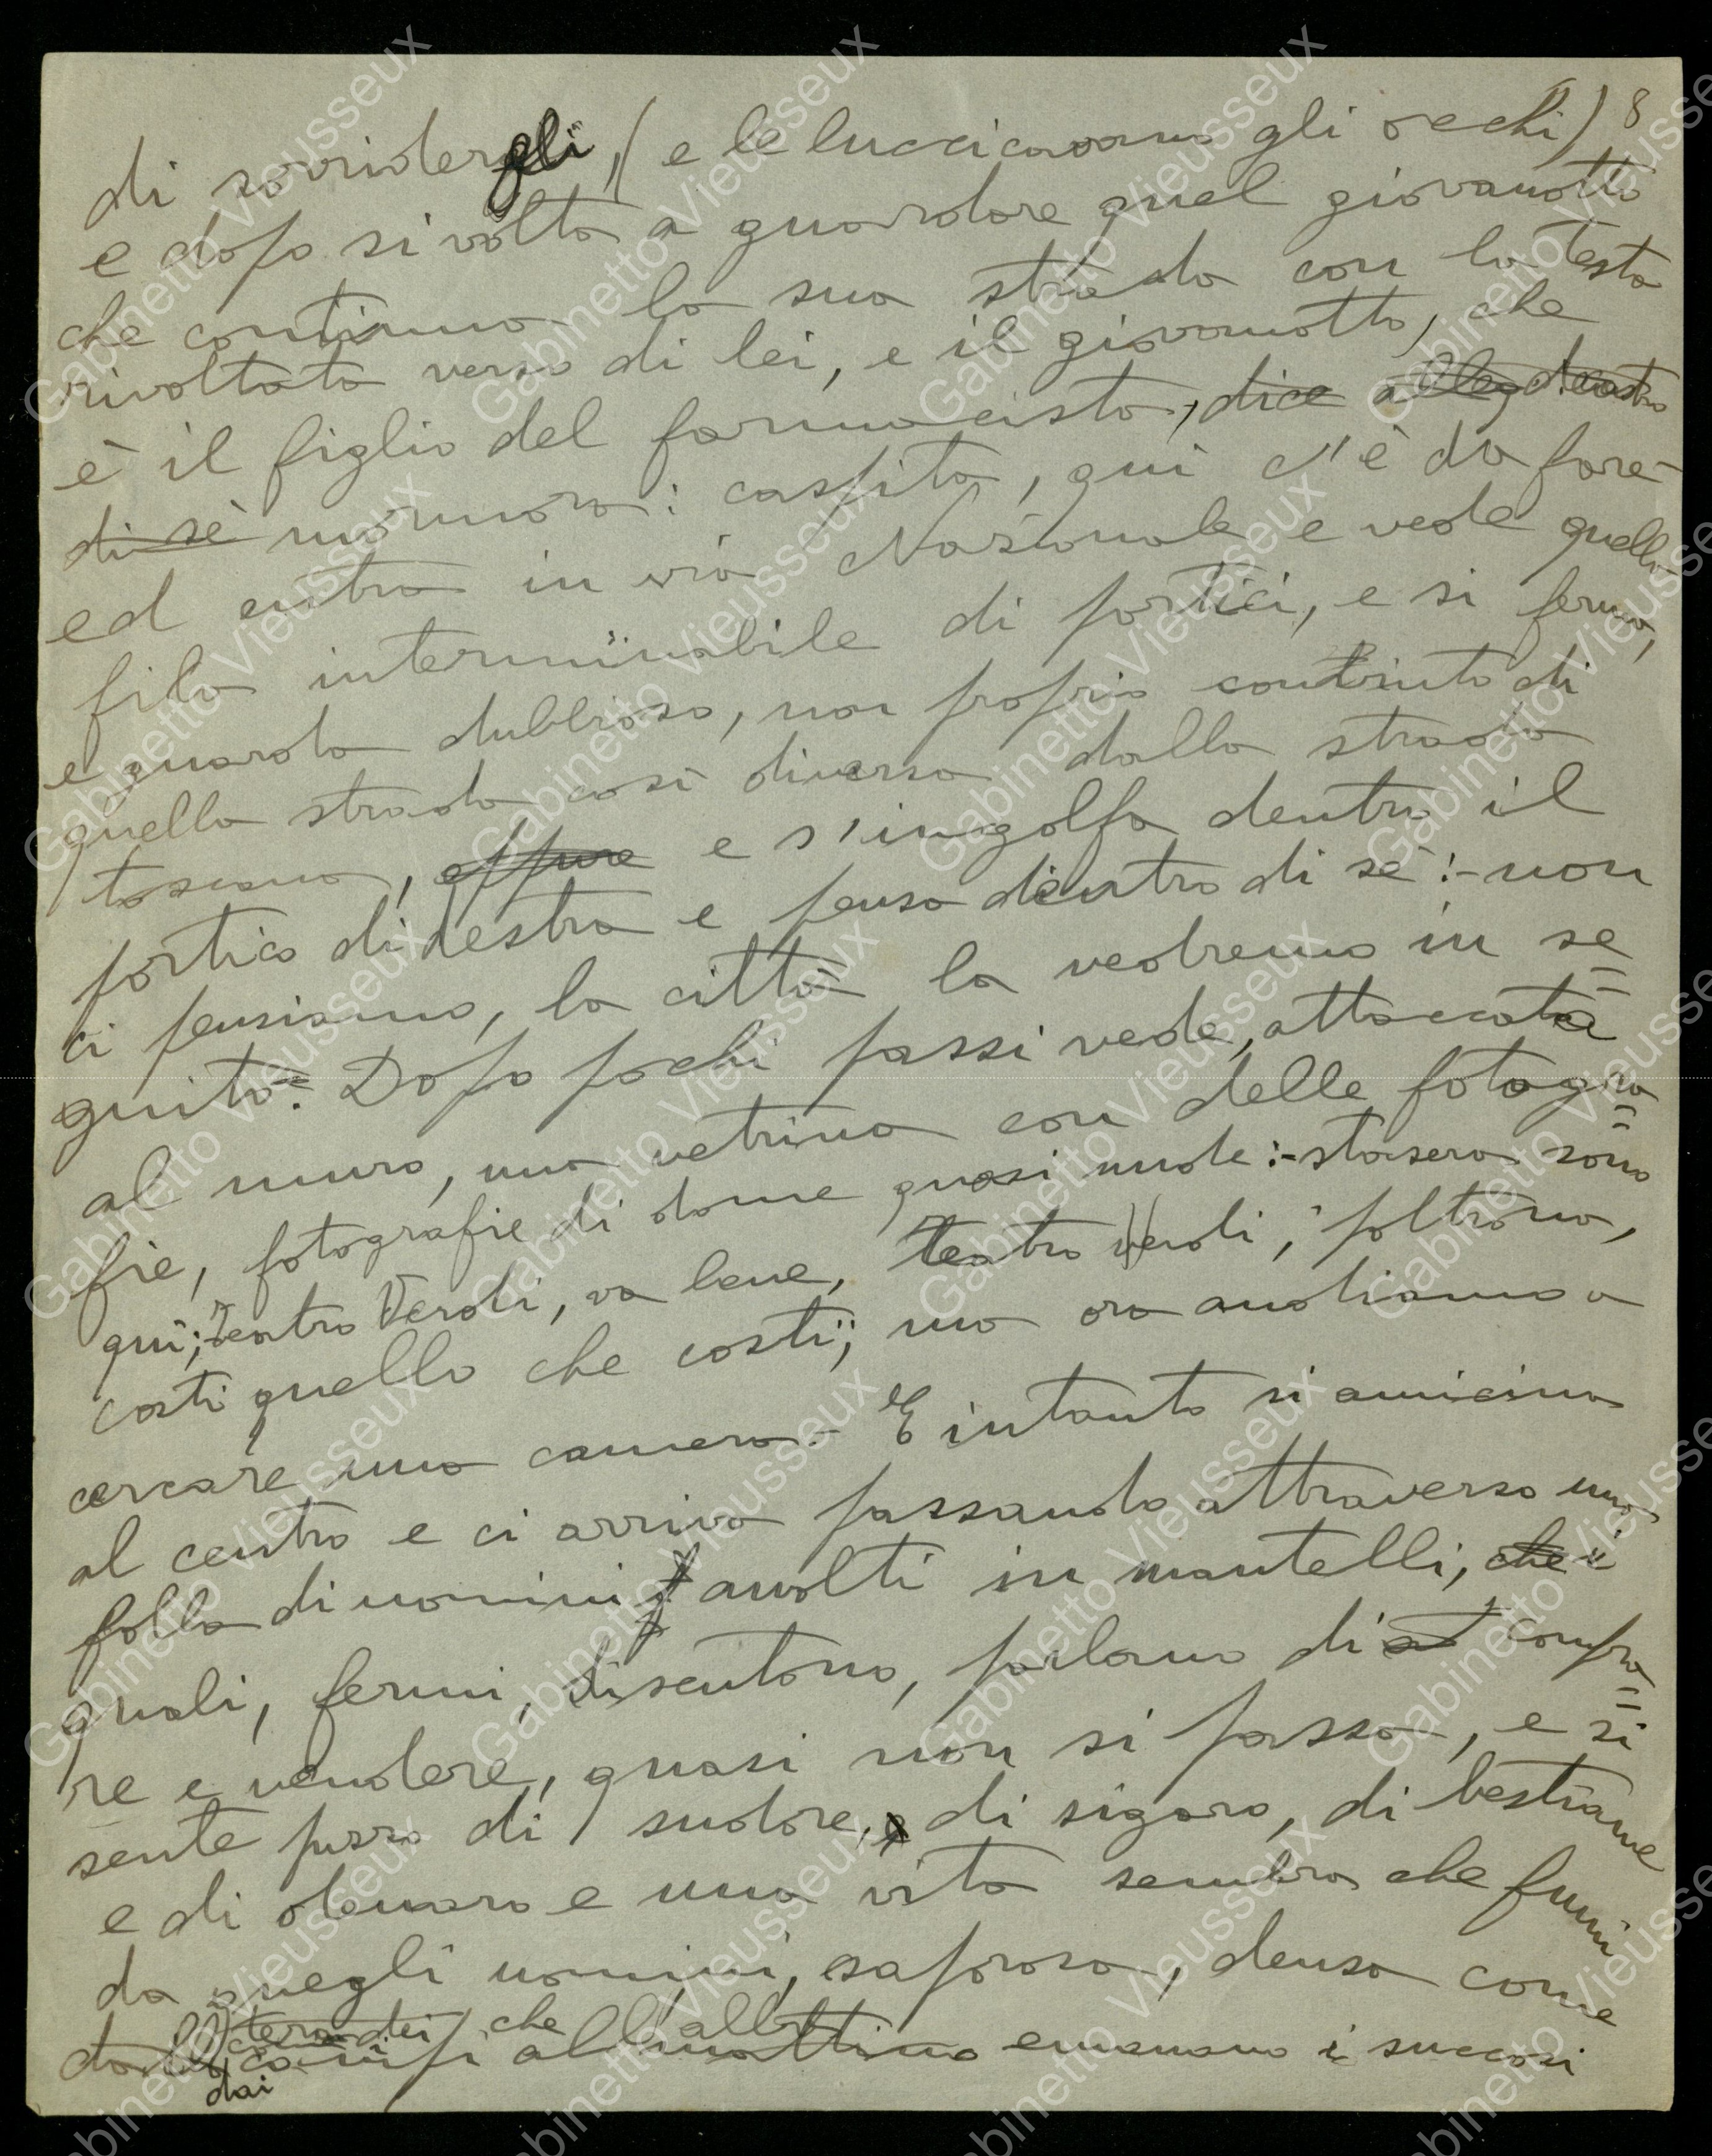 8
di sorridergli, (e le luccicavano gli occhi)
e dopo si volta a guardare quel giovanotto
che continua la sua strada con la testa
rivoltata verso di lei, e il giovanotto, che
è il figlio del farmacista, dice dentro
di sè mormora: caspita, qui c'è da fare
ed entra in via Nazionale e vede quella
fila interminabile di portici, e si ferma,
e guarda dubbioso, non proprio contento di
quella strada così diversa dalla strada
toscana, eppure e s'ingolfa dentro il
portico di destra e pensa dentro di sè:- non
ci pensiamo, la città la vedremo in se=
guito.- Dopo pochi passi vede, attaccata
al muro, una vetrina con delle fotogra=
fie, fotografie di donne quasi nude:- stasera sono
qui; Teatro Verdi, va bene, Teatro Verdi, poltrona,
costi quello che costi; ma ora andiamo a
cercare una camera.- E intanto si avvicina
al centro e ci arriva passando attraverso una
folla di uomini avvolti in mantelli, che i
quali, fermi, discutono, parlano di compra=
re e vendere, quasi non si passa, e si
sente puzzo di sudore, di sigaro, di bestiame
e di denaro e una vita sembra che fumi
da quegli uomini, saporosa, densa come
che all'alba
dalla campi al mattino emanano i succosi
dai
Gabinetto Vieusseux